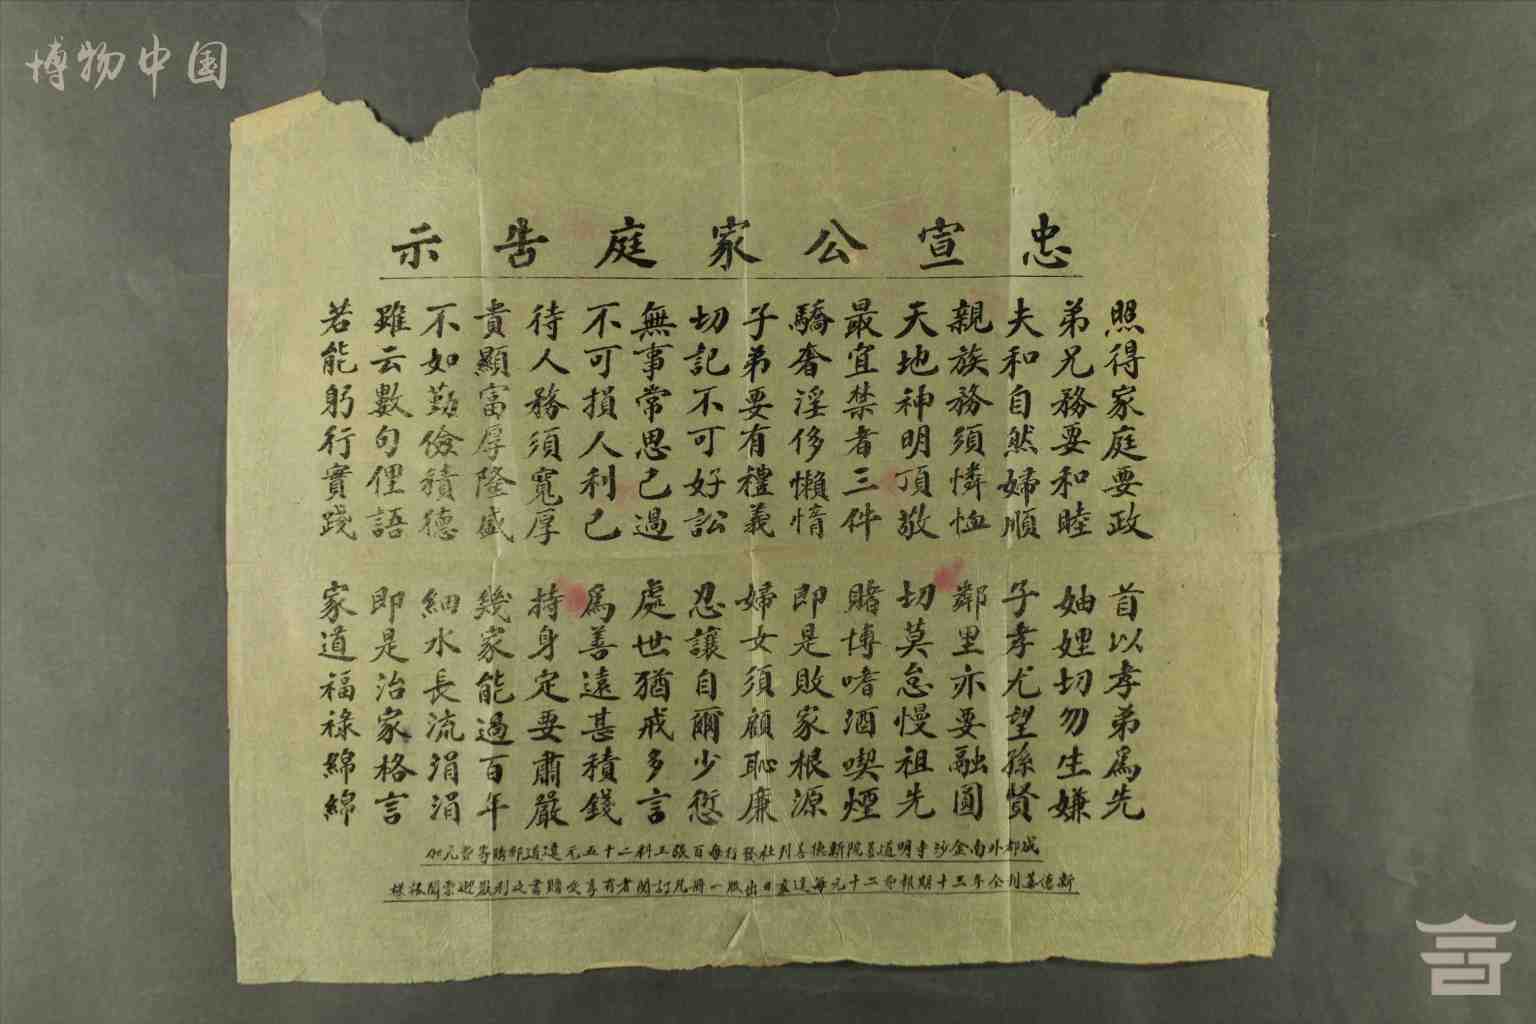 博物中国
忠宣公家庭告示
照得家庭要政 首以孝弟為先
弟兄務要和睦 妯娌切勿生嫌
夫和自然婦順 子孝尤望孫賢
親族務須憐恤 鄰里亦要融圓
天地神明頂敬 切莫怠慢祖先
最宜禁者三件 賭博嗜酒喫煙
驕奢淫侈懶惰 即是敗家根源
子弟要有禮義 婦女須顧恥廉
切記不可好訟 忍讓自爾少愆
無事常思己過 處世猶戒多言
不可損人利己 為善遠甚積錢
待人務須寬厚 持身定要肅嚴
貴顯富厚隆盛 幾家能過百年
不如勤儉積德 細水長流涓涓
雖云數句俚語 即是治家格言
若能躬行實踐 家道福祿綿綿
成都外南金沙寺明道善院新德善刊社發行每百張工料二十五元遠道郵購寄費元加
新德善刊全年三十期報費二十元每逢 日出版一冊凡訂閱者有享受贈書之利 迎索閱 樣